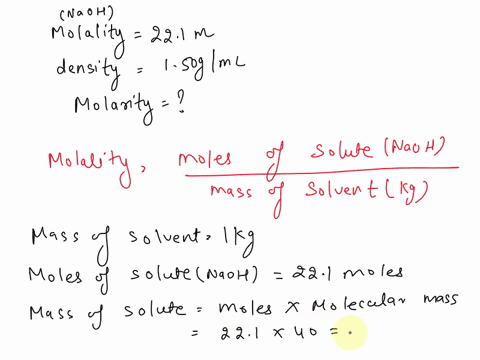 (NaOH)
Molality = 22.1 m
density = 1.50g/mL
Molarity = ?
Molality, moles of solute (NaOH)
mass of solvent (kg)
Mass of solvent, 1kg
Moles of solute (NaOH) = 22.1 moles
Mass of solute = moles x Molecular mass
= 22.1 x 40 =